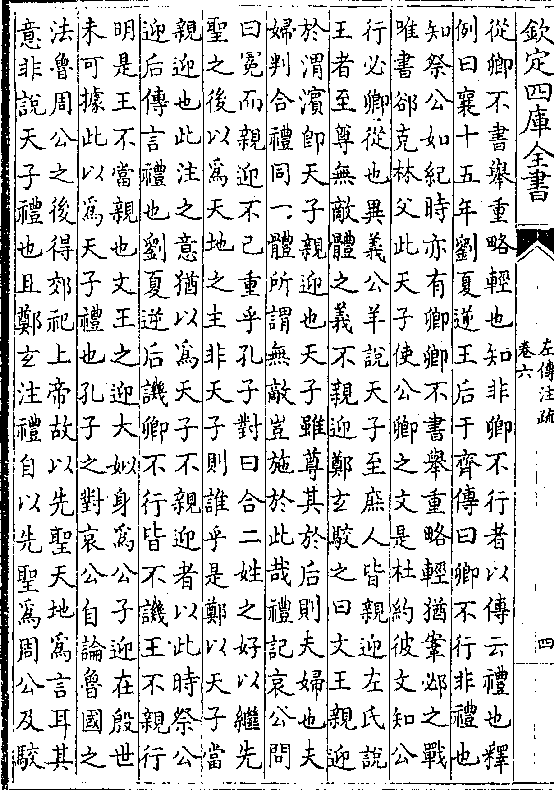 欽定四庫全書
左傳注疏
卷六
四
從卿不書舉重略輕也知非卿不行者以傳云禮也釋
例曰襄十五年劉夏逆王后于齊傳曰卿不行非禮也
知祭公如紀時亦有卿卿不書舉重略輕猶鞌邲之戰
唯書郤克林父此天子使公卿之文是杜約彼文知公
行必卿從也異義公羊說天子至庶人皆親迎左氏說
王者至尊無敵體之義不親迎鄭玄駮之曰文王親迎
於渭濱卽天子親迎也天子雖尊其於后則夫婦也夫
婦判合禮同一體所謂無敵豈施於此哉禮記哀公問
曰冕而親迎不已重乎孔子對曰合二姓之好以繼先
聖之後以爲天地之主非天子則誰乎是鄭以天子當
親迎也此注之意猶以爲天子不親迎者以此時祭公
迎后傳言禮也劉夏逆后譏卿不行皆不譏王不親行
明是王不當親也文王之迎大姒身爲公子迎在殷世
未可據此以爲天子禮也孔子之對哀公自論魯國之
法魯周公之後得郊祀上帝故以先聖天地爲言耳其
意非說天子禮也且鄭玄注禮自以先聖爲周公及駮